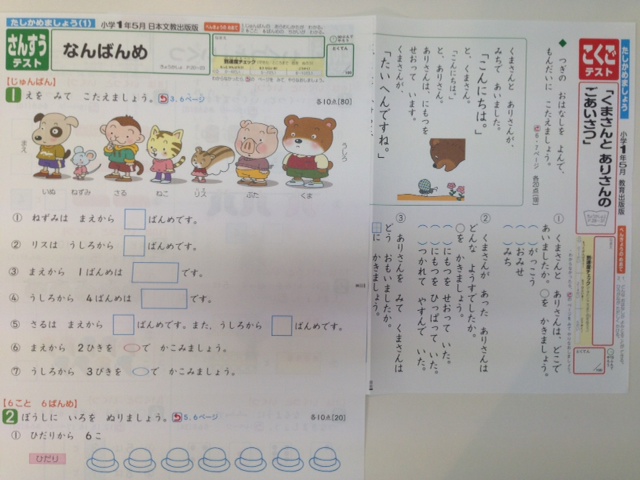 たしかめましょう(1)
小学1年5月 日本文教出版版
さんすう
テスト
なんばんめ
【じゅんばん】
1 えを みて こたえましょう。 3、6ページ
8·10点(80)
まえ
うしろ
いぬ ねずみ さる ねこ りす ぶた くま
① ねずみは まえから ばんめです。
② リスは うしろから ばんめです。
③ まえから 1ばんめは です。
④ うしろから 4ばんめは です。
⑤ さるは まえから ばんめです。また、うしろから ばんめです。
⑥ まえから 2ひきを で かこみましょう。
⑦ うしろから 3びきを で かこみましょう。
【6こと 6ばんめ】
2 ぼうしに いろを ぬりましょう。 5、6ページ
8·10点(20)
① ひだりから 6こ
ひだり
たしかめましょう
小学1年5月 教育出版版
こくご
テスト
「くまさんと ありさんの
ごあいさつ」
◆ つぎの おはなしを よんで、
もんだいに こたえましょう。
くまさんと ありさんが、
みちで あいました。
「こんにちは。」
と、くまさん。
「こんにちは。」
と、ありさん。
ありさんは、にもつを
せおって います。
くまさんが、
「たいへんですね。」
① くまさんと ありさんは、どこで
あいましたか。○を かきましょう。
( )がっこう
( )おみせ
( )みち
② くまさんが あった ありさんは
どんな ようすでしたか。
○を かきましょう。
( )にもつを せおって いた。
( )にもつを ひっぱって いた。
( )つかれて やすんで いた。
③ ありさんを みて くまさんは
どう おもいましたか。
に かきましょう。